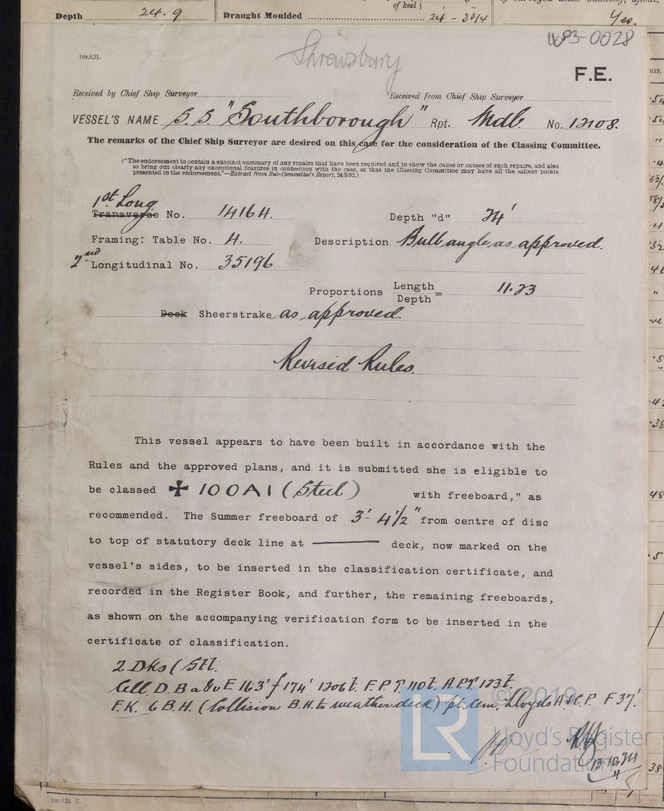 Depth 24.9 of keel Draught Moulded 24 - 3 3/4 Yes.
Shrewsbury
LRF-0028
1m,6,21.
F.E.
Received by Chief Ship Surveyor Received from Chief Ship Surveyor
VESSEL'S NAME S.S "Southborough" Rpt. Mdb. No. 12108.
The remarks of the Chief Ship Surveyor are desired on this case for the consideration of the Classing Committee.
("The endorsement to contain a succinct summary of any repairs that have been required and to show the cause or causes of such repairs, and also
so bring out clearly any exceptional features in connection with the case, so that the Classing Committee may have all the salient points
presented in the endorsement."—Extract from Sub-Committee's Report, 24/5/92.)
1st Long
Transverse No. 14164. Depth "d" 24'
Framing: Table No. 4. Description Bulb angle as approved.
2nd Longitudinal No. 35196
Proportions Length
Depth = 11.23
Deck Sheerstrake as approved.
Revised Rules.
This vessel appears to have been built in accordance with the
Rules and the approved plans, and it is submitted she is eligible to
be classed ✠ 100A1 (Steel) with freeboard," as
recommended. The Summer freeboard of 3'- 4½" from centre of disc
to top of statutory deck line at ——— deck, now marked on the
vessel's sides, to be inserted in the classification certificate, and
recorded in the Register Book, and further, the remaining freeboards,
as shown on the accompanying verification form to be inserted in the
certificate of classification.
2 Dks (Stl.
Cell D.B a&uE 163' f 174' 1206t. F.P.T 110t. A.P.T 123t.
F.K. 6 B.H. (Collision B.H. to weather deck) pt. cem, Lloyds A&CP. F 37'.
13.10.24
© 2019
LR Lloyd's Register
Foundation
1m,6,21 T.